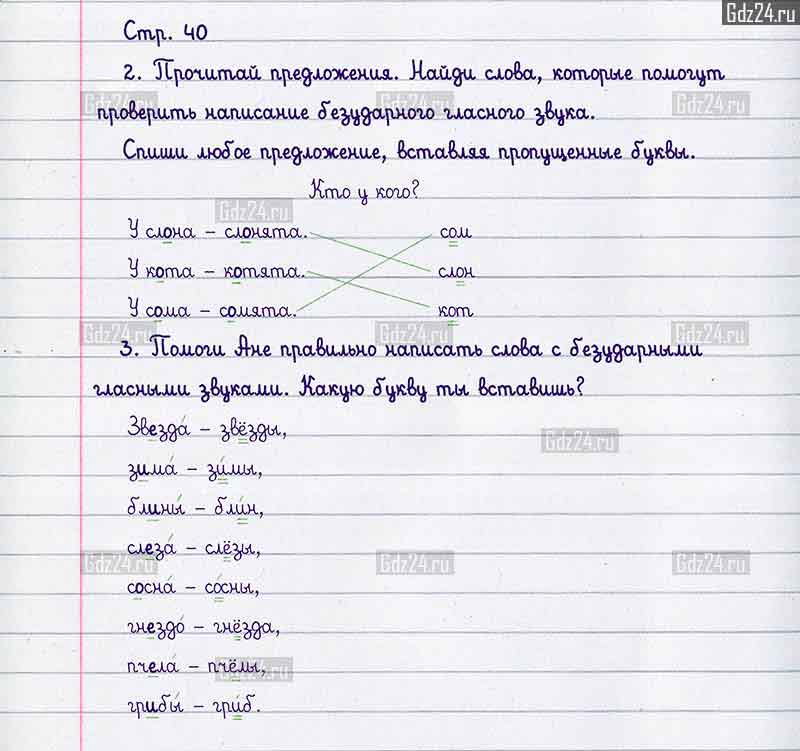 Gdz24.ru
Стр. 40
2. Прочитай предложения. Найди слова, которые помогут
Gdz24.ru Gdz24.ru Gdz24.ru
проверить написание безударного гласного звука.
Спиши любое предложение, вставляя пропущенные буквы.
Кто у кого?
Gdz24.ru
У слона – слонята. сом
У кота – котята. слон
У сома – сомята. кот
Gdz24.ru Gdz24.ru Gdz24.ru
3. Помоги Ане правильно написать слова с безударными
гласными звуками. Какую букву ты вставишь?
Звезда́ – звёзды,
Gdz24.ru
зима́ – зи́мы,
блины́ – бли́н,
слеза́ – слёзы,
Gdz24.ru Gdz24.ru Gdz24.ru
сосна́ – со́сны,
гнездо́ – гнёзда,
пчела́ – пчёлы,
Gdz24.ru
грибы́ – гри́б.